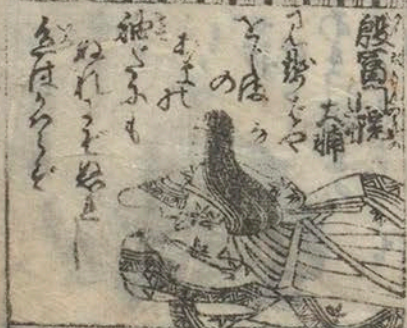 殷富門院
大輔
見せばや
なをじま
の
あまの
袖だにも
ぬれにぞぬれし
色はかはらず